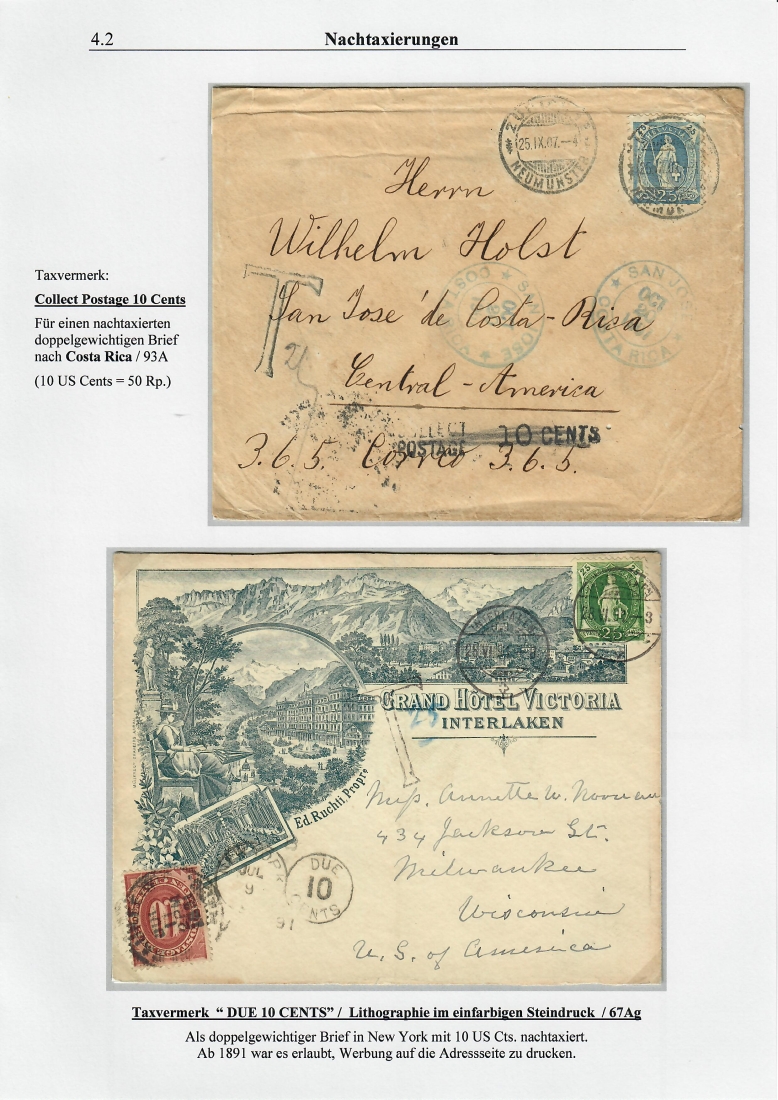 4.2 Nachtaxierungen
Taxvermerk:
Collect Postage 10 Cents
Für einen nachtaxierten
doppelgewichtigen Brief
nach Costa Rica / 93A
(10 US Cents = 50 Rp.)
25.IX.07.—4
NEUMÜNSTER
25
Herrn
Wilhelm Holst
San José de Costa-Rica
Central-America
3.6.5. Correo 3.6.5.
T
SAN JOSE
COSTA RICA
SAN JOSE
COSTA RICA
COLLECT
POSTAGE
10 CENTS
25
GRAND HÔTEL VICTORIA
INTERLAKEN
T
Ed. Ruchti Propre
Miss. Annette W.
434 Jackson St.
Milwaukee
Wisconsin
U. S. of America
JUL
9
91
DUE
10
CENTS
10
Taxvermerk “ DUE 10 CENTS” / Lithographie im einfarbigen Steindruck / 67Ag
Als doppelgewichtiger Brief in New York mit 10 US Cts. nachtaxiert.
Ab 1891 war es erlaubt, Werbung auf die Adressseite zu drucken.